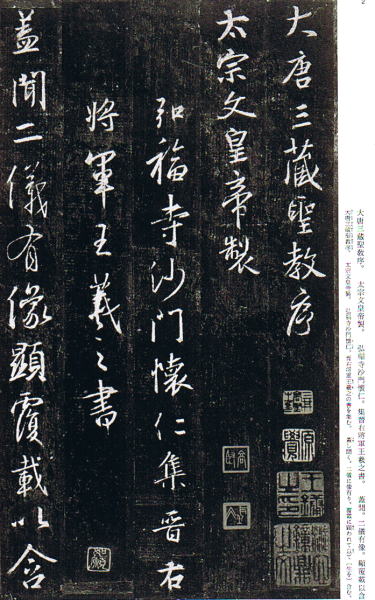 2
大唐三藏聖教序。 太宗文皇帝製。 弘福寺沙門懷仁。集晉右將軍王羲之書。 蓋聞。二儀有像。顯覆載以含
大唐三藏聖教序
太宗文皇帝製
弘福寺沙門懷仁集晉右
將軍王羲之書
蓋聞二儀有像顯覆載以含